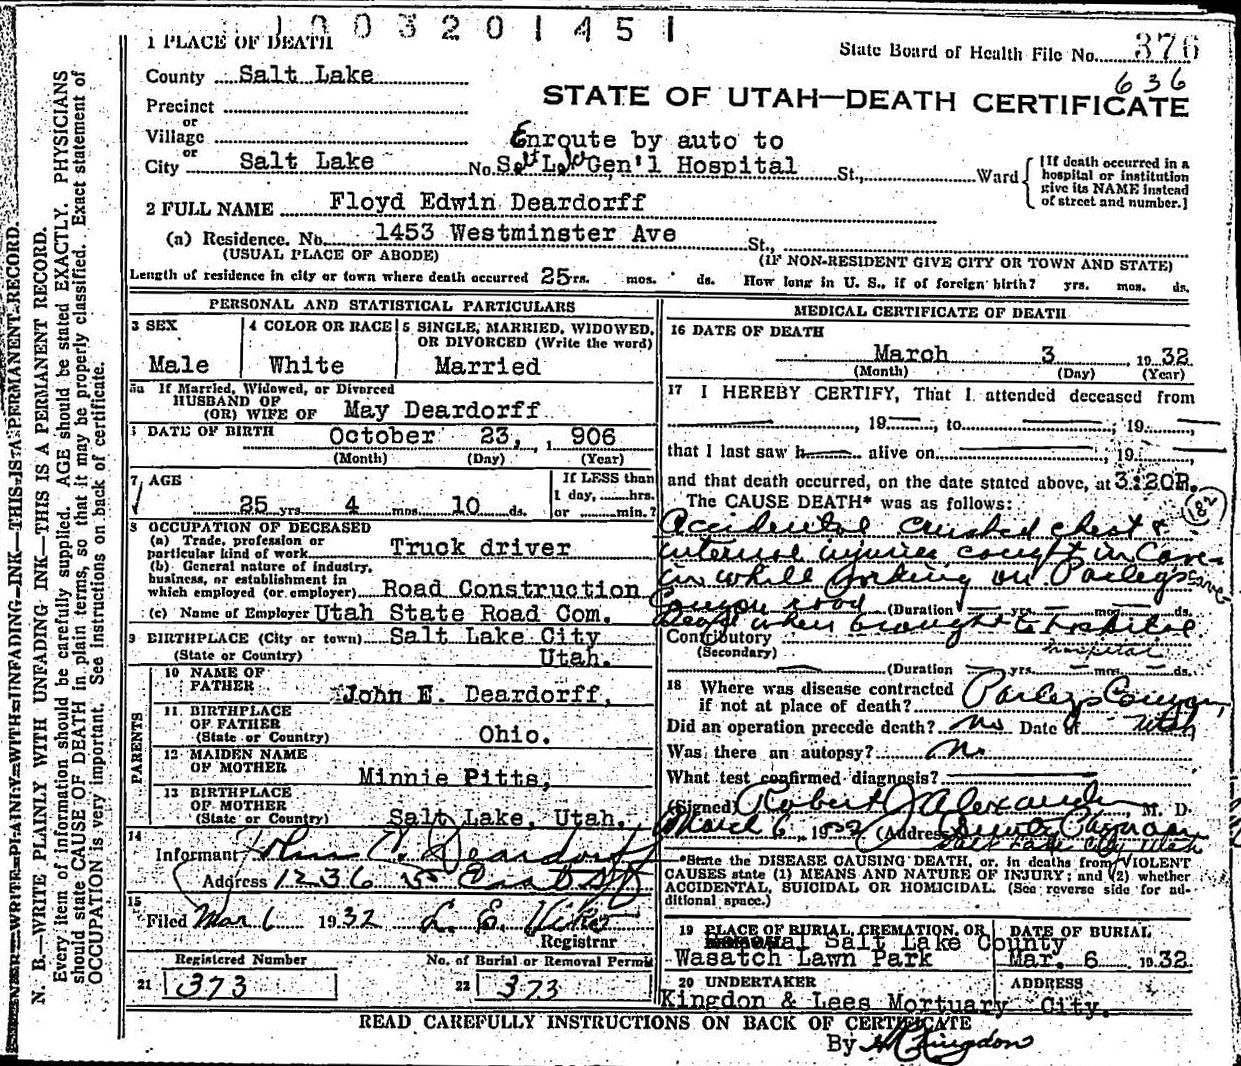 1003201451
State Board of Health File No. 376
636
1 PLACE OF DEATH
County Salt Lake
STATE OF UTAH—DEATH CERTIFICATE
Precinct
or
Village
Enroute by auto to
or
City Salt Lake No. Salt Lake Gen'l Hospital St., Ward
[If death occurred in a
hospital or institution
give its NAME instead
of street and number.]
2 FULL NAME Floyd Edwin Deardorff
(a) Residence. No. 1453 Westminster Ave St.,
(USUAL PLACE OF ABODE) (IF NON-RESIDENT GIVE CITY OR TOWN AND STATE)
Length of residence in city or town where death occurred 25 yrs. mos. ds. How long in U. S., if of foreign birth? yrs. mos. ds.
PERSONAL AND STATISTICAL PARTICULARS
3 SEX
Male
4 COLOR OR RACE
White
5 SINGLE, MARRIED, WIDOWED,
OR DIVORCED (Write the word)
Married
5a If Married, Widowed, or Divorced
HUSBAND OF
(OR) WIFE OF May Deardorff
DATE OF BIRTH October 23, , 906
(Month) (Day) (Year)
7 AGE
25 yrs 4 mos. 10 ds.
If LESS than
1 day, hrs.
or min.?
8 OCCUPATION OF DECEASED
(a) Trade, profession or
particular kind of work Truck driver
(b) General nature of industry,
business, or establishment in
which employed (or employer) Road Construction
(c) Name of Employer Utah State Road Com.
9 BIRTHPLACE (City or town) Salt Lake City
(State or Country) Utah.
PARENTS
10 NAME OF
FATHER John E. Deardorff,
11 BIRTHPLACE
OF FATHER
(State or Country) Ohio.
12 MAIDEN NAME
OF MOTHER Minnie Pitts,
13 BIRTHPLACE
OF MOTHER
(State or Country) Salt Lake, Utah.
14
Informant John E. Deardorff
Address 1236 East
15
Filed Mar 6 1932 L. E.
Registrar
Registered Number
21 373
No. of Burial or Removal Permit
22 373
MEDICAL CERTIFICATE OF DEATH
16 DATE OF DEATH
March 3 1932
(Month) (Day) (Year)
17 I HEREBY CERTIFY, That I attended deceased from
, 19 , to , 19 ,
that I last saw h alive on , 19
and that death occurred, on the date stated above, at 3:20P.
The CAUSE DEATH* was as follows:
182
Accidental crushed chest &
internal injuries caught in Cave
in while working on Parleys
Canyon road (Duration yrs. mos. ds.
when brought to Hospital
Contributory
(Secondary) hospital
(Duration yrs. mos. ds.
18 Where was disease contracted
if not at place of death? Parleys Canyon,
Utah
Did an operation precede death? no Date of
Was there an autopsy? no
What test confirmed diagnosis?
(Signed) Robert J Alexander M. D.
March 6, 1932 (Address)
Salt Lake City Utah
*State the DISEASE CAUSING DEATH, or, in deaths from VIOLENT
CAUSES state (1) MEANS AND NATURE OF INJURY; and (2) whether
ACCIDENTAL, SUICIDAL OR HOMICIDAL. (See reverse side for ad-
ditional space.)
19 PLACE OF BURIAL, CREMATION, OR
Removal Salt Lake County
Wasatch Lawn Park
DATE OF BURIAL
Mar. 6 1932
20 UNDERTAKER
Kingdon & Lees Mortuary
ADDRESS
City.
READ CAREFULLY INSTRUCTIONS ON BACK OF CERTIFICATE
By Kingdon
WRITE PLAINLY WITH UNFADING INK—THIS IS A PERMANENT RECORD.
N. B.—WRITE PLAINLY WITH UNFADING INK—THIS IS A PERMANENT RECORD.
Every item of information should be carefully supplied. AGE should be stated EXACTLY. PHYSICIANS
should state CAUSE OF DEATH in plain terms, so that it may be properly classified. Exact statement of
OCCUPATION is very important. See instructions on back of certificate.